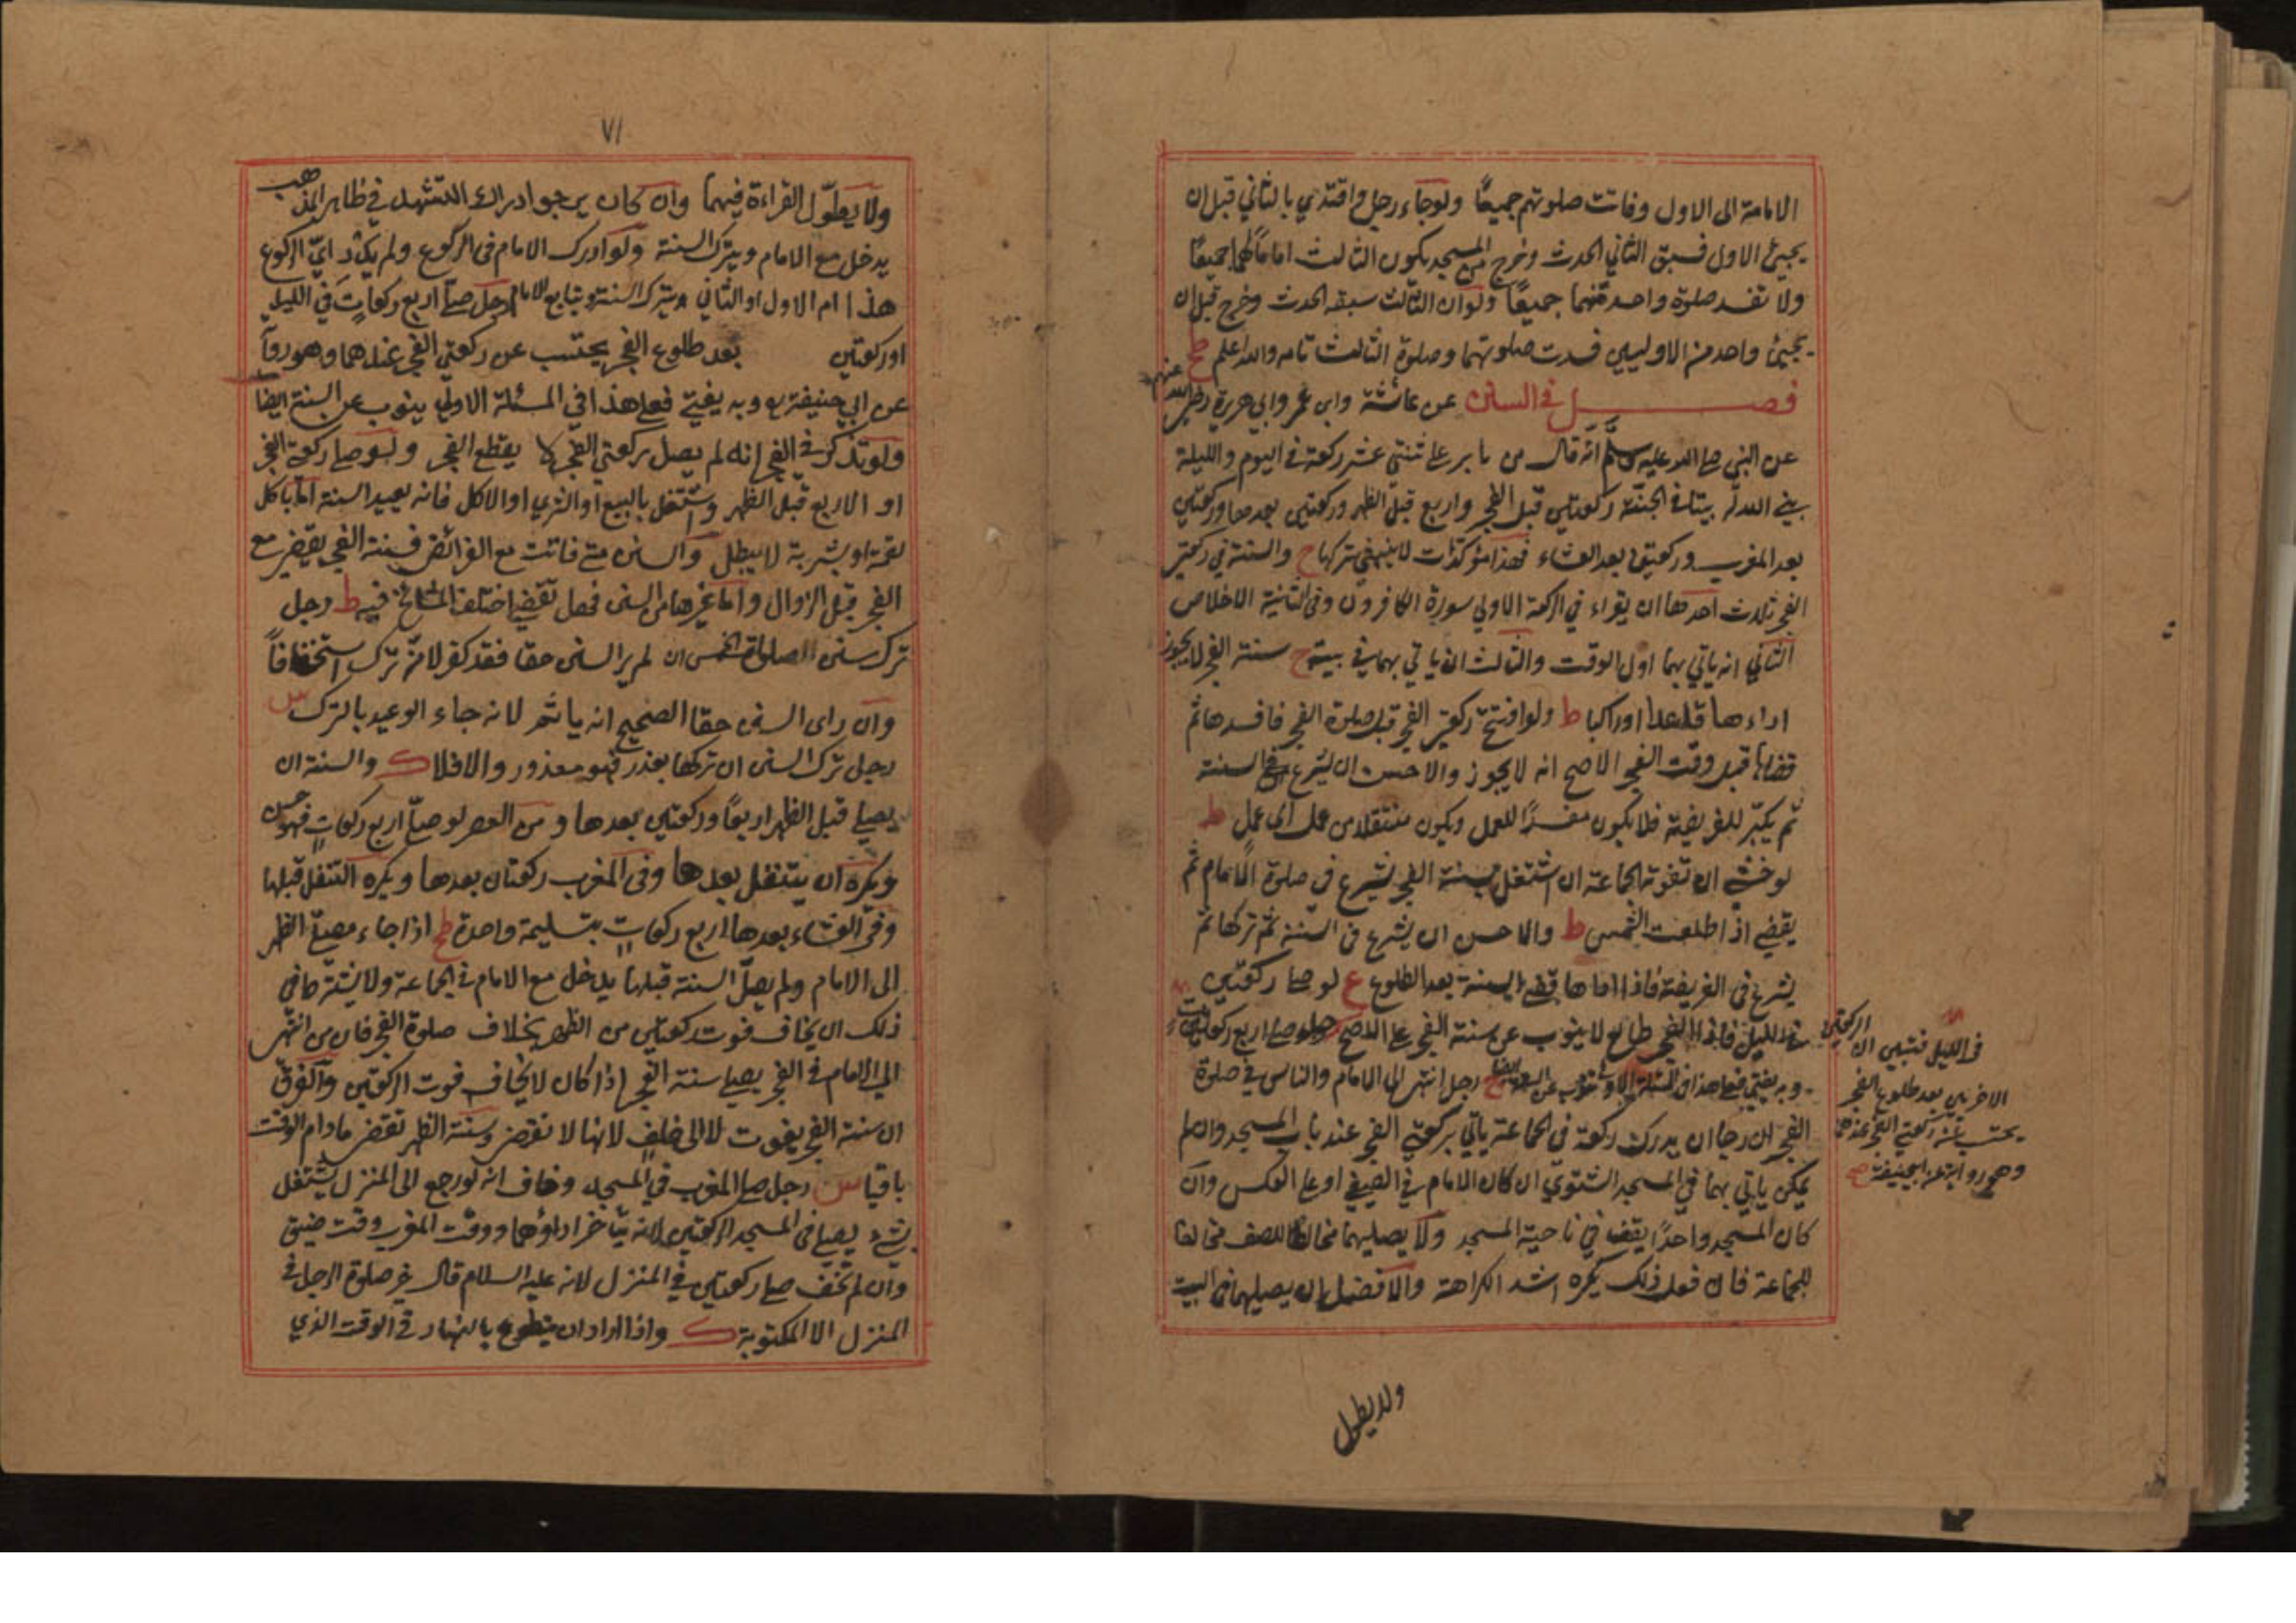 الامامة الى الاول وفاتت صلوتهم جميعًا ولوجاء رجل واقتدي بالثاني قبل ان
يجيئ الاول فسبق الثاني الحدث وخرج من المسجد يكون الثالث اماما لهما جميعًا
ولا تفسد صلوة واحد منهما جميعًا ولو ان الثالث سبقه الحدث وخرج قبل ان
يجيئ واحد من الاوليين فسدت صلوتهما وصلوة الثالث تامه والله اعلم
فصل في السنن عن عائشة وابن عمر وابي هريرة رضى الله عنهم
عن النبي صلى الله عليه وسلم انه قال من ثابر على ثنتي عشر ركعة في اليوم والليلة
بني الله له بيتا في الجنة ركعتين قبل الفجر واربع قبل الظهر وركعتين بعدها وركعتين
بعد المغرب وركعتين بعد العشاء فهذا مؤكدات لا ينبغي تركها ح والسنة في ركعتي
الفجر ثلاث احدها ان يقراء في الركعة الاولي سورة الكافرون وفى الثانية الاخلاص
الثاني انه ياتي بهما اول الوقت والثالث ان ياتي بهما في بيته ح سنة الفجر لا يجوز
اداءها قاعدا اوراكبا ط ولوافتتح ركعتي الفجر قبل صلوة الفجر فافسدها ثم
قضاها قبل وقت الفجر الاصح انه لا يجوز والاحسن ان يشرع في السنة
ثم يكبر للفريضة فلا يكون مفسدًا للعمل ويكون منتقلا من عمل الى عمل ط
لو خشي ان تفوته الجماعة ان اشتغل بسنة الفجر يشرع في صلوة الامام ثم
يقضي اذا طلعت الشمس ط والاحسن ان يشرع في السنة ثم تركها ثم
يشرع في الفريضة فاذا اتمها قضي السنة بعد الطلوع ع لو صلى ركعتين
من الليل فاذا الفجر طالع لا ينوب عن سنة الفجر على الاصح رجل صلى اربع ركعات
وبه يفتي فعلى هذا في المسئلة الاولي ينوب عن السنة ايضا رجل انتهى الى الامام والناس في صلوة
الفجر ان رجا ان يدرك ركعة في الجماعة ياتي بركعتي الفجر عند باب المسجد وان لم
يمكن ياتي بهما في المسجد الشتوي ان كان الامام في الصيفي او على العكس وان
كان المسجد واحدًا يقف في ناحية المسجد ولا يصليهما مخالطا للصف مخالفا
للجماعة فان فعل ذلك يكره اشد الكراهة والافضل ان يصليهما في البيت
في الليل فتبين ان الركعتين
الاخريين بعد طلوع الفجر
يحتسب عن ركعتي الفجر عندهما
وهو رواية عن ابي حنيفة
ولا يطول
٧١
ولا يطوّل القراءة فيهما وان كان يرجو ادراك التشهد في ظاهر المذهب
يدخل مع الامام ويترك السنة ولو ادرك الامام فى الركوع ولم يدر ايّ الركوع
هذا ام الاول او الثاني يترك السنة ويتابع الامام رجل صلى اربع ركعات في الليل
اوركعتين بعد طلوع الفجر يحتسب عن ركعتي الفجر عندهما وهو رواية
عن ابي حنيفة وبه يفتي فعلى هذا في المسئلة الاولي ينوب عن السنة ايضا
ولو تذكر في الفجر انه لم يصل ركعتي الفجر لا يقطع الفجر ولو صلى ركعتي الفجر
او الاربع قبل الظهر واشتغل بالبيع او الشري او الاكل فانه يعيد السنة اما باكل
لقمة او بشربة لا يبطل والسنن متى فاتت مع الفرائض فسنة الفجر يقضي مع
الفجر قبل الزوال واما غيرها من السنن فهل تقضي اختلف المشائخ فيه ط رجل
ترك سنن الصلوات الخمس ان لم ير السنن حقا فقد كفر لانه ترك استخفافاً
وان راى السنن حقا الصحيح انه ياثم لانه جاء الوعيد بالترك س
رجل ترك السنن ان تركها بعذر فهو معذور والا فلا ك والسنة ان
يصلي قبل الظهر اربعًا وركعتين بعدها و من العصر لو صلى اربع ركعات فهو حسن
ويكره ان يتنفل بعدها وفى المغرب ركعتان بعدها ويكره التنفل قبلها
وفي العشاء بعدها اربع ركعات بتسليمة واحدة طح اذا جاء مصلي الظهر
الى الامام ولم يصل السنة قبلها يدخل مع الامام في الجماعة ولا يشتغل في
ذلك ان يخاف فوت ركعتين من الظهر بخلاف صلوة الفجر فان من انتهى
الى الامام في الفجر يصلي سنة الفجر اذا كان لا يخاف فوت الركعتين والفرق
ان سنة الفجر يفوت لا الى خلف لانها لا تقضى وسنة الظهر تقضى مادام الوقت
باقيا س رجل صلى المغرب في المسجد وخاف انه لو رجع الى المنزل يشتغل
بشئ يصلي فى المسجد الركعتين لانه يتأخر اداؤهما ووقت المغرب وقت ضيق
وان لم يخف صلى ركعتين في المنزل لانه عليه السلام قال خير صلوة الرجل في
المنزل الا المكتوبة ك واذا اراد ان يتطوع بالنهار في الوقت الذي